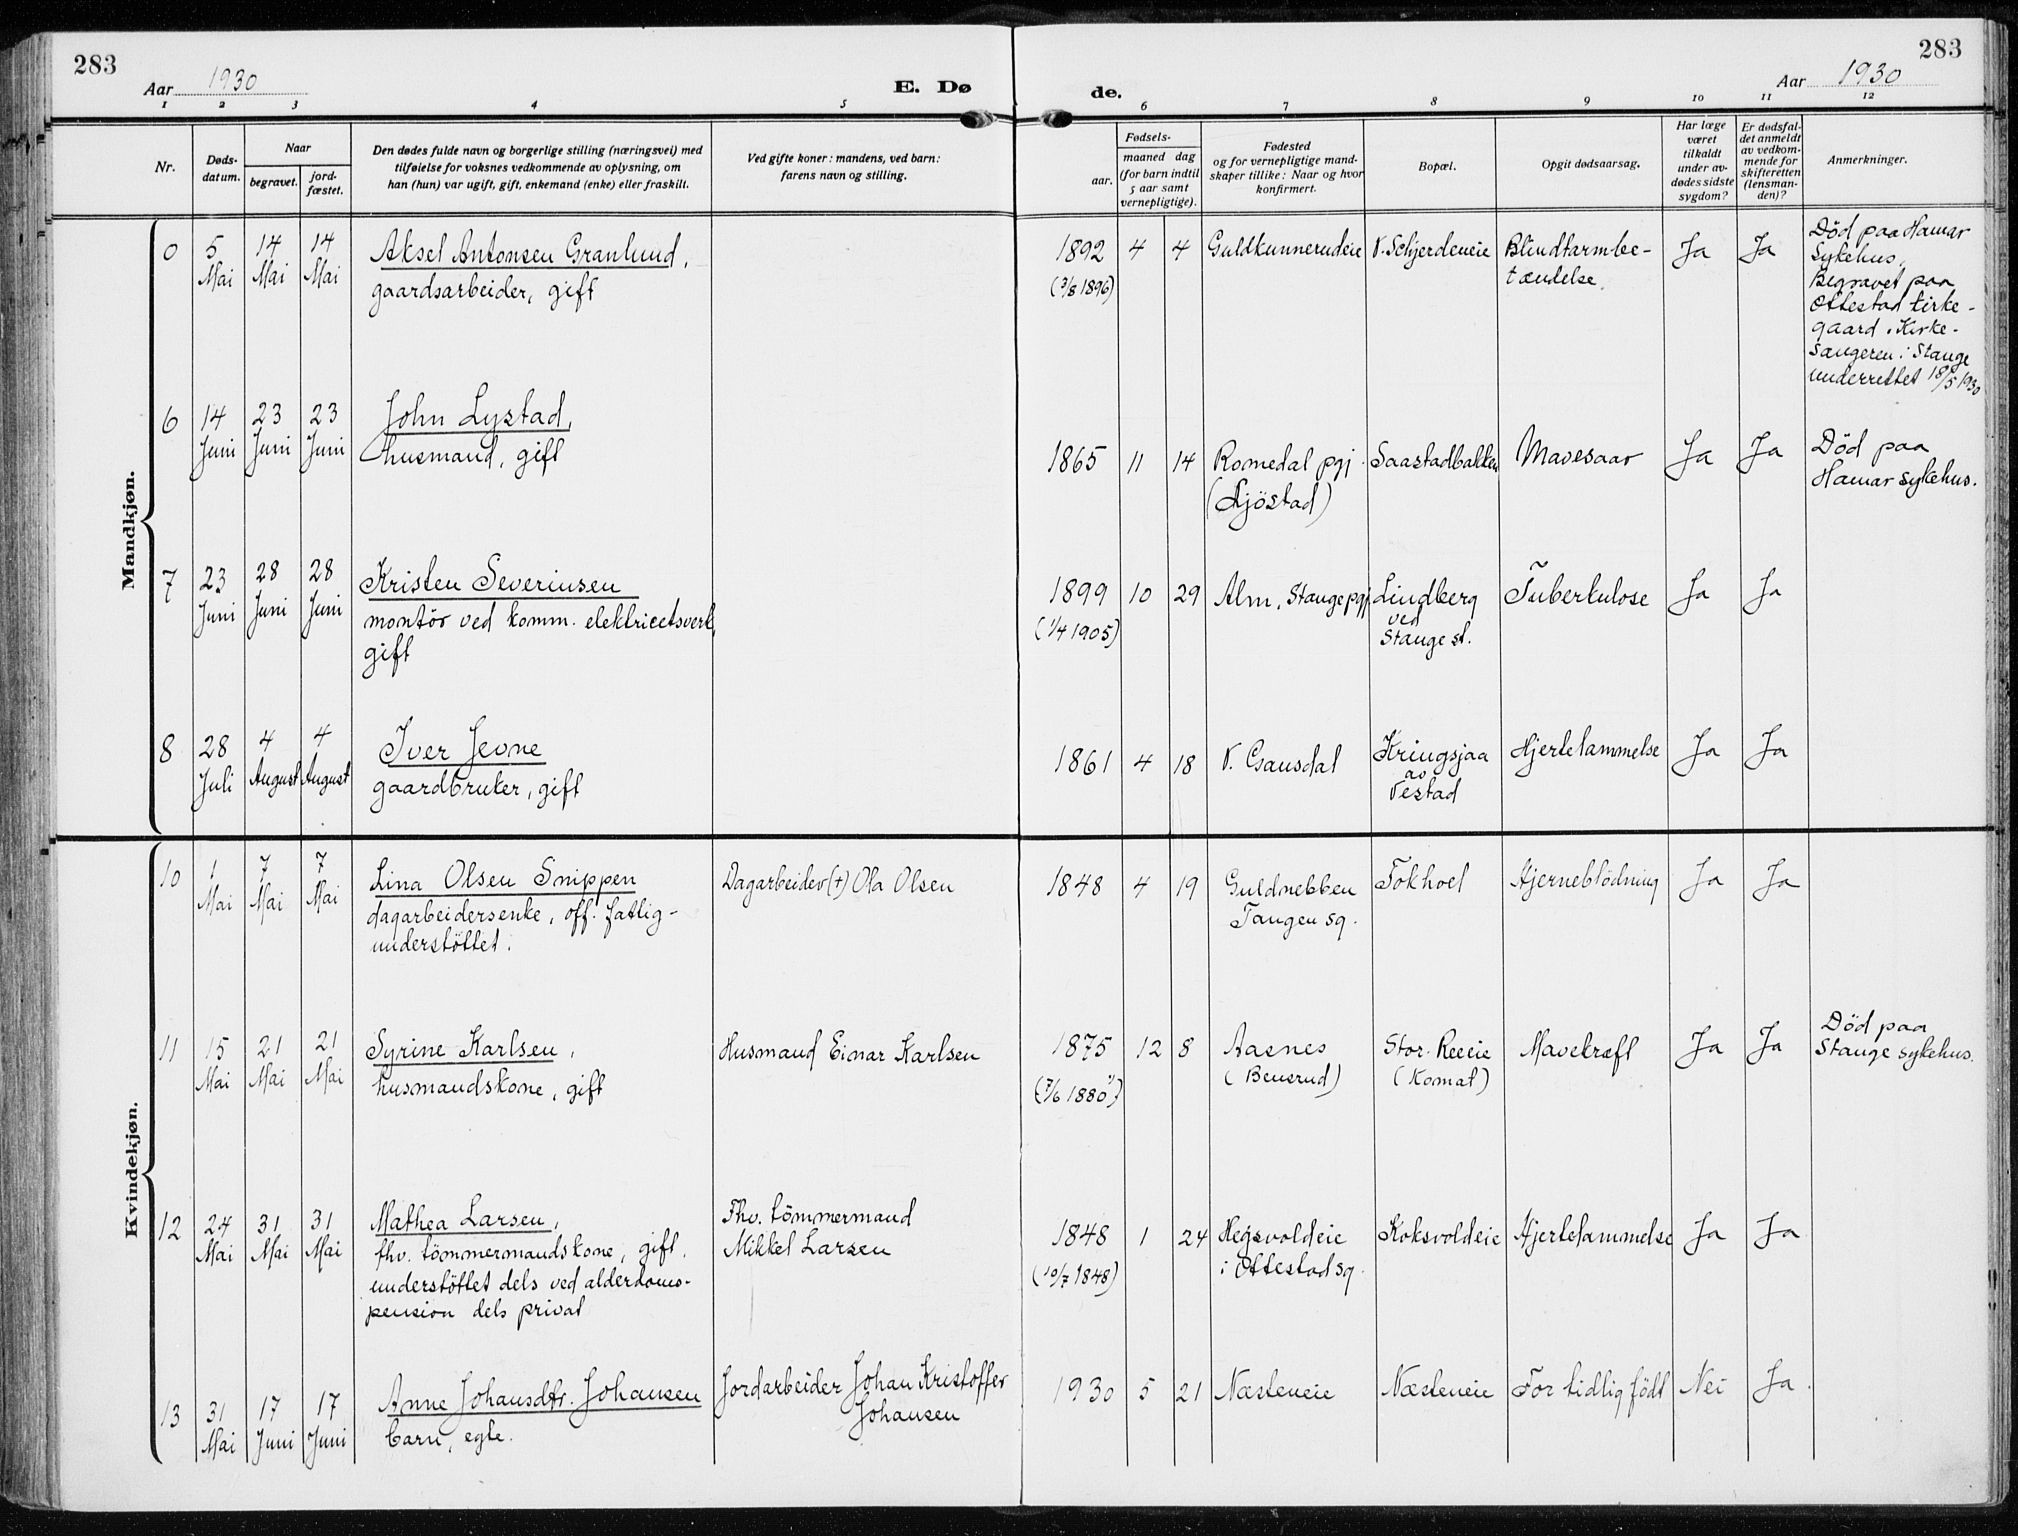 283
Aar 1930
E. Dø
de.
283
Aar 1930
1 2 3 4 5 6 7 8 9 10 11 12
Nr.
Døds-
datum.
Naar
begravet.
jord-
fæstet.
Den dødes fulde navn og borgerlige stilling (næringsvei) med
tilføielse for voksnes vedkommende av oplysning, om
han (hun) var ugift, gift, enkemand (enke) eller fraskilt.
Ved gifte koner: mandens, ved barn:
farens navn og stilling.
Fødsels-
aar.
maaned dag
(for barn indtil
5 aar samt
vernepligtige).
Fødested
og for vernepligtige mand-
skaper tillike: Naar og hvor
konfirmert.
Bopæl.
Opgit dødsaarsag.
Har læge
været
tilkaldt
under av-
dødes sidste
sygdom?
Er dødsfal-
det anmeldt
av vedkom-
mende for
skifteretten
(lensman-
den)?
Anmerkninger.
Mandkjøn.
0 5 Mai 14 Mai 14 Mai
Aksel Antonsen Granlund,
gaardsarbeider, gift
1892 4 4
(3/8 1896)
Guldkunnerudeie
V. Schjerdeneie
Blindtarmbe-
tændelse.
Ja Ja
Död paa Hamar
Sykehus,
Begravet paa
Ottestad kirke-
gaard. Kirke-
sangeren i Stange
underrettet 18/5 1930
6 14 Juni 23 Juni 23 Juni
John Lystad,
husmand, gift
1865 11 14
Romedal pgj
(Ljöstad)
Saastadbakken
Mavesaar
Ja Ja
Död paa
Hamar sykehus.
7 23 Juni 28 Juni 28 Juni
Kristen Severinsen
montör ved komm. elektricetsverk,
gift
1899 10 29
(1/4 1905)
Alm, Stange pgj
Lindberg
ved
Stange st.
Tuberkulose
Ja Ja
8 28 Juli 4 August 4 August
Iver Jevne
gaardbruker, gift
1861 4 18
V. Gausdal
Kringsjaa
av
Vestad
Hjertelammelse
Ja Ja
Kvindekjøn.
10 1 Mai 7 Mai 7 Mai
Lina Olsen Snippen
dagarbeidersenke, off. fattig-
understöttet.
Dagarbeider (+) Ola Olsen
1848 4 19
Guldnebben
Tangen sg.
Fokhol
Hjerneblödning
Ja Ja
11 15 Mai 21 Mai 21 Mai
Syrine Karlsen,
husmandskone, gift
Husmand Einar Karlsen
1875 12 8
(7/6 1880!)
Aasnes
(Benerud)
Stor. Reeeie
(Komat)
Mavekræft
Ja Ja
Död paa
Stange sykehus.
12 24 Mai 31 Mai 31 Mai
Mathea Larsen,
fhv. tömmermandskone, gift,
understöttet dels ved alderdoms-
pension dels privat
Fhv. tömmermand
Mikkel Larsen
1848 1 24
(10/7 1848)
Hegsvoldeie
i Ottestad sg.
Koksvoldeie
Hjertelammelse
Ja Ja
13 31 Mai 17 Juni 17 Juni
Anne Johansdtr. Johansen
barn, egte.
Jordarbeider Johan Kristoffer
Johansen
1930 5 21
Næsteneie
Næsteneie
For tidlig födt
Nei Ja